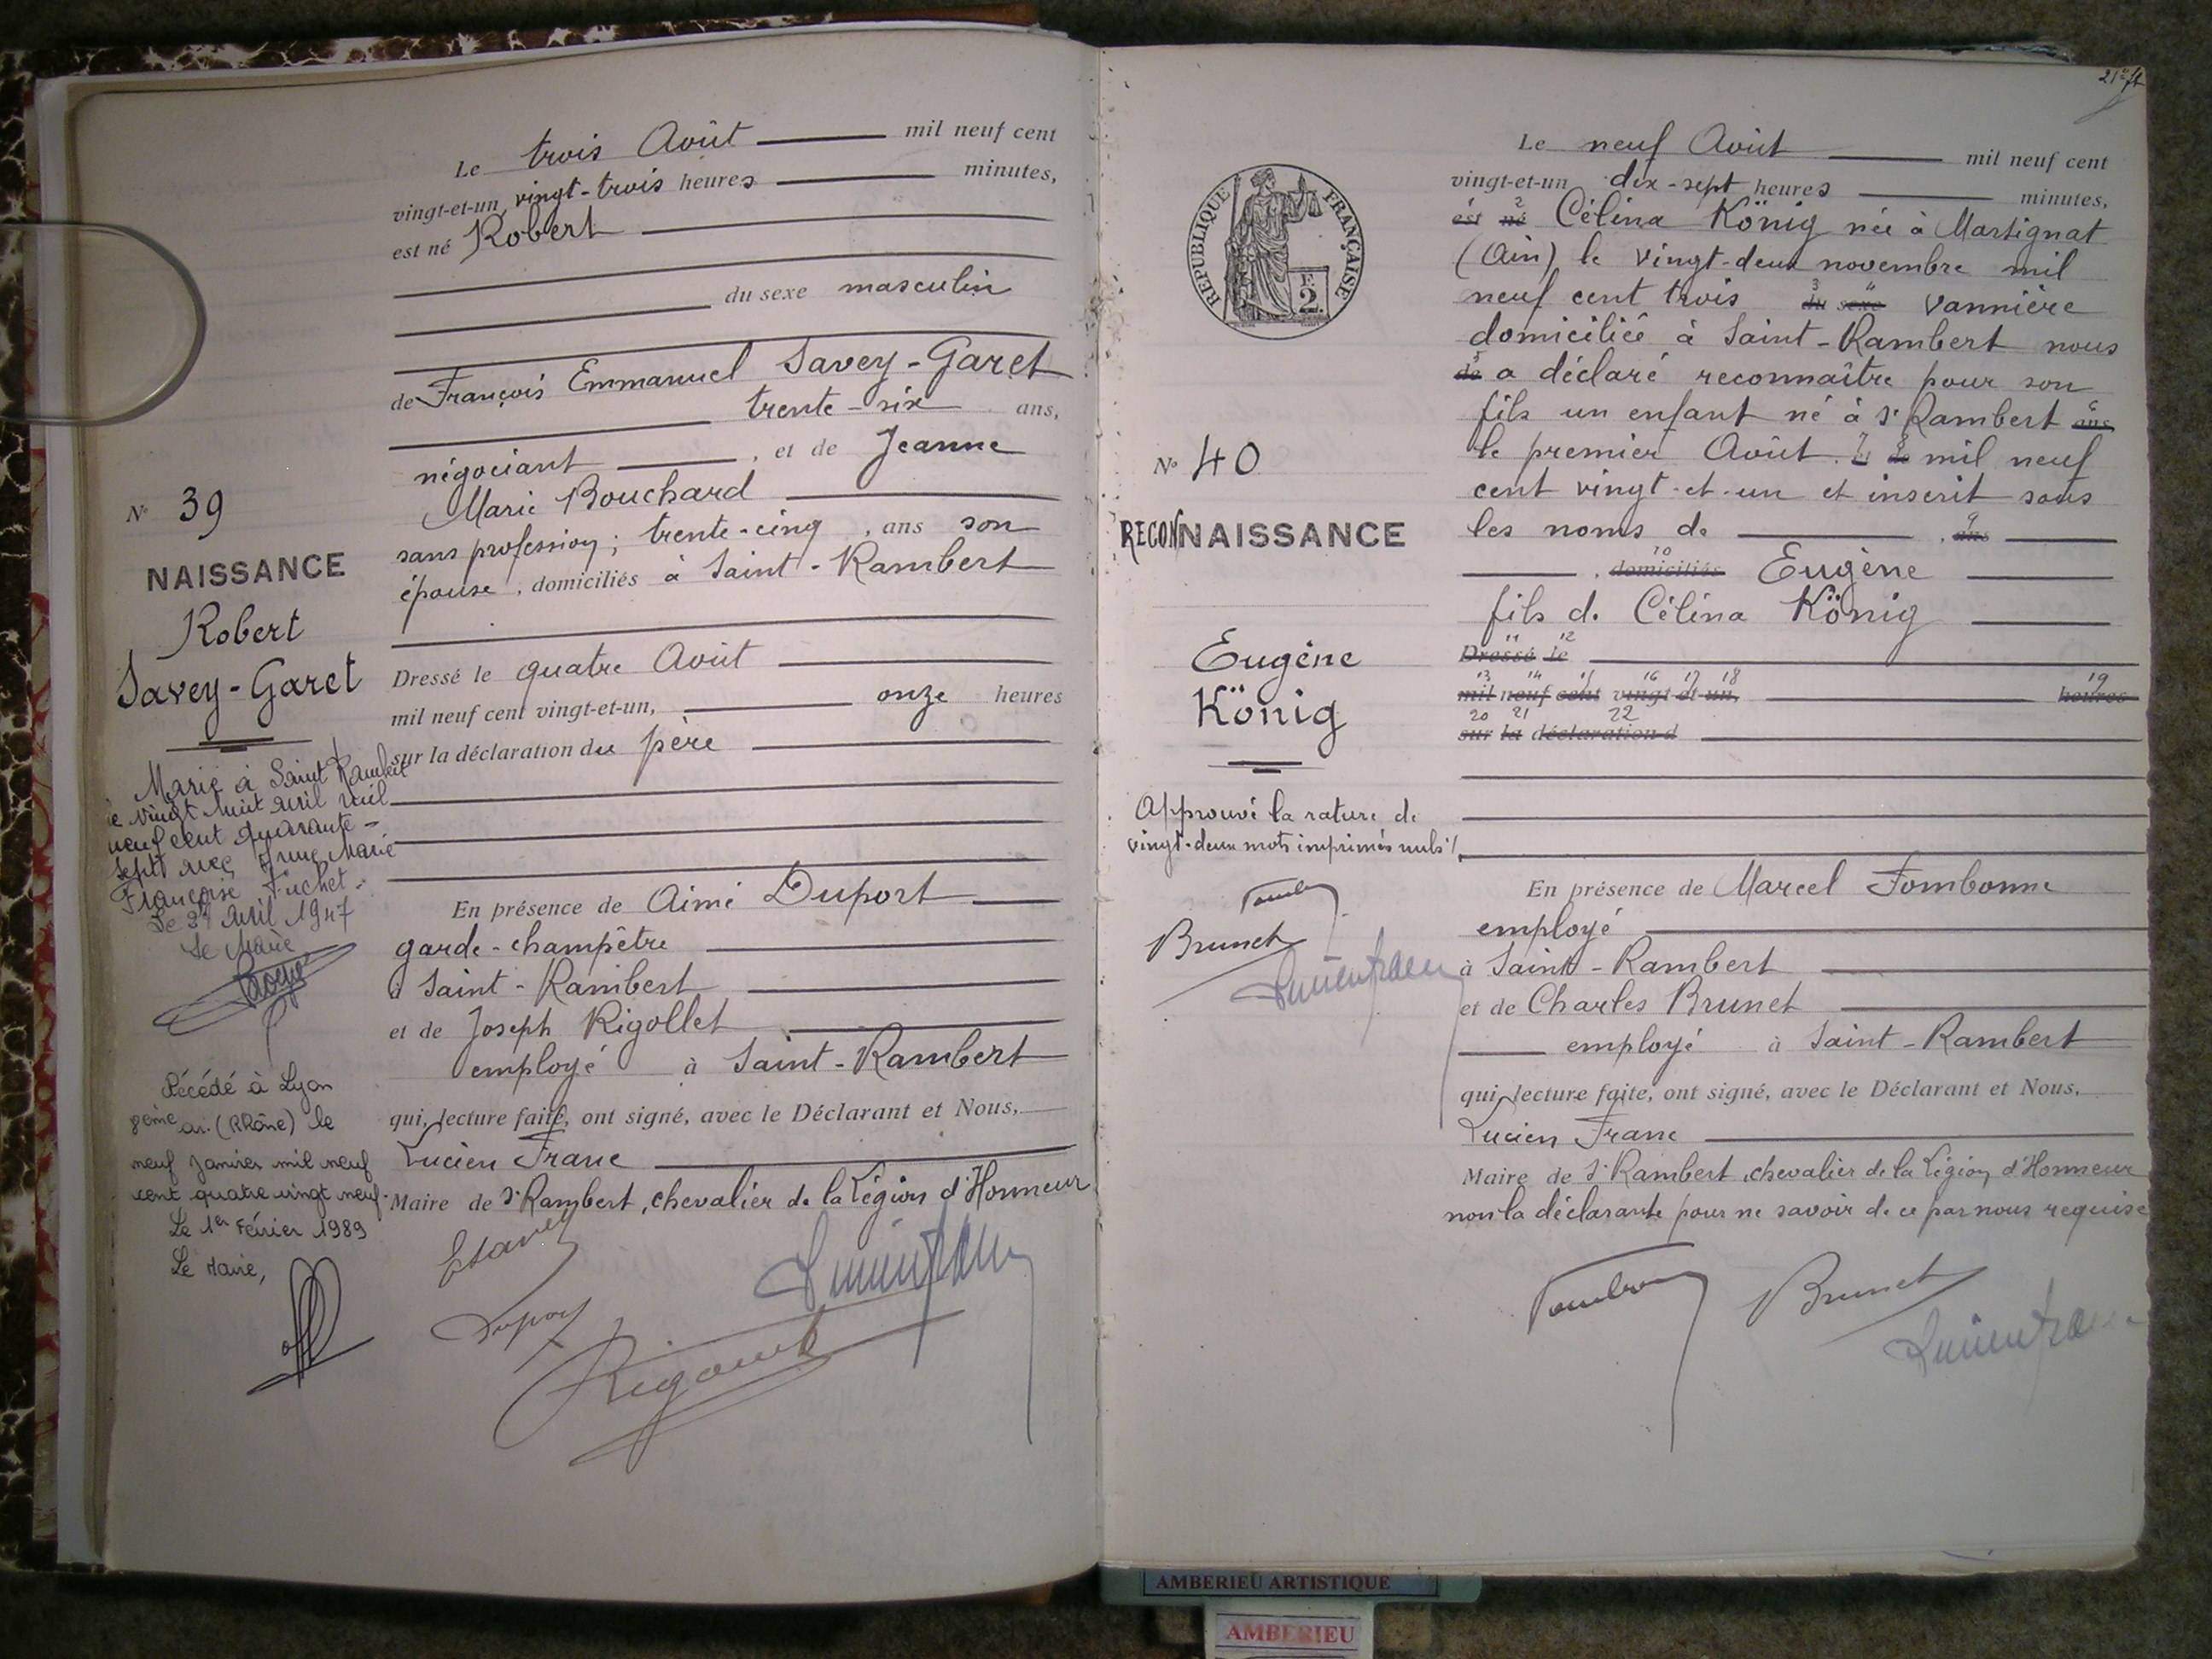 N° 39
NAISSANCE
Robert
Savey-Garet
Marié à Saint Rambert
le vingt huit avril mil
neuf cent quarante-
sept avec Marie
Françoise
Le avril 1947
Le Maire
Décédé à Lyon
8ème ar. (Rhône) le
neuf janvier mil neuf
cent quatre vingt neuf.
Le 1er Février 1989
Le Maire,
Le trois Août mil neuf cent
vingt-et-un, vingt-trois heures minutes,
est né Robert
du sexe masculin
de François Emmanuel Savey-Garet
trente-six ans,
négociant, et de Jeanne
Marie Bouchard
sans profession; trente-cinq, ans son
épouse, domiciliés à Saint-Rambert
Dressé le quatre Août
mil neuf cent vingt-et-un, onze heures
sur la déclaration du père
En présence de Aimé Duport
garde-champêtre
à Saint-Rambert
et de Joseph Rigollet
employé à Saint-Rambert
qui, lecture faite, ont signé, avec le Déclarant et Nous,
Lucien Franc
Maire de St Rambert, chevalier de la Légion d'Honneur
21
REPUBLIQUE FRANÇAISE
F.
2.
N° 40
RECONNAISSANCE
Eugène
König
Approuvé la rature de
vingt-deux mots imprimés nuls
Brunet
Le neuf Août mil neuf cent
vingt-et-un dix-sept heures minutes,
est né Célina König née à Martignat
(Ain) le vingt-deux novembre mil
neuf cent trois du sexe vannière
domiciliée à Saint-Rambert nous
de a déclaré reconnaître pour son
fils un enfant né à St Rambert ans
le premier Août, et de mil neuf
cent vingt-et-un et inscrit sous
les noms de , ans
, domiciliés Eugène
fils de Célina König
Dressé le
mil neuf cent vingt et un, heures
sur la déclaration d
En présence de Marcel Fombonne
employé
à Saint-Rambert
et de Charles Brunet
employé à Saint-Rambert
qui, lecture faite, ont signé, avec le Déclarant et Nous,
Lucien Franc
Maire de St Rambert, chevalier de la Légion d'Honneur
non la déclarante pour ne savoir de ce par nous requise
Brunet
AMBERIEU ARTISTIQUE
AMBERIEU